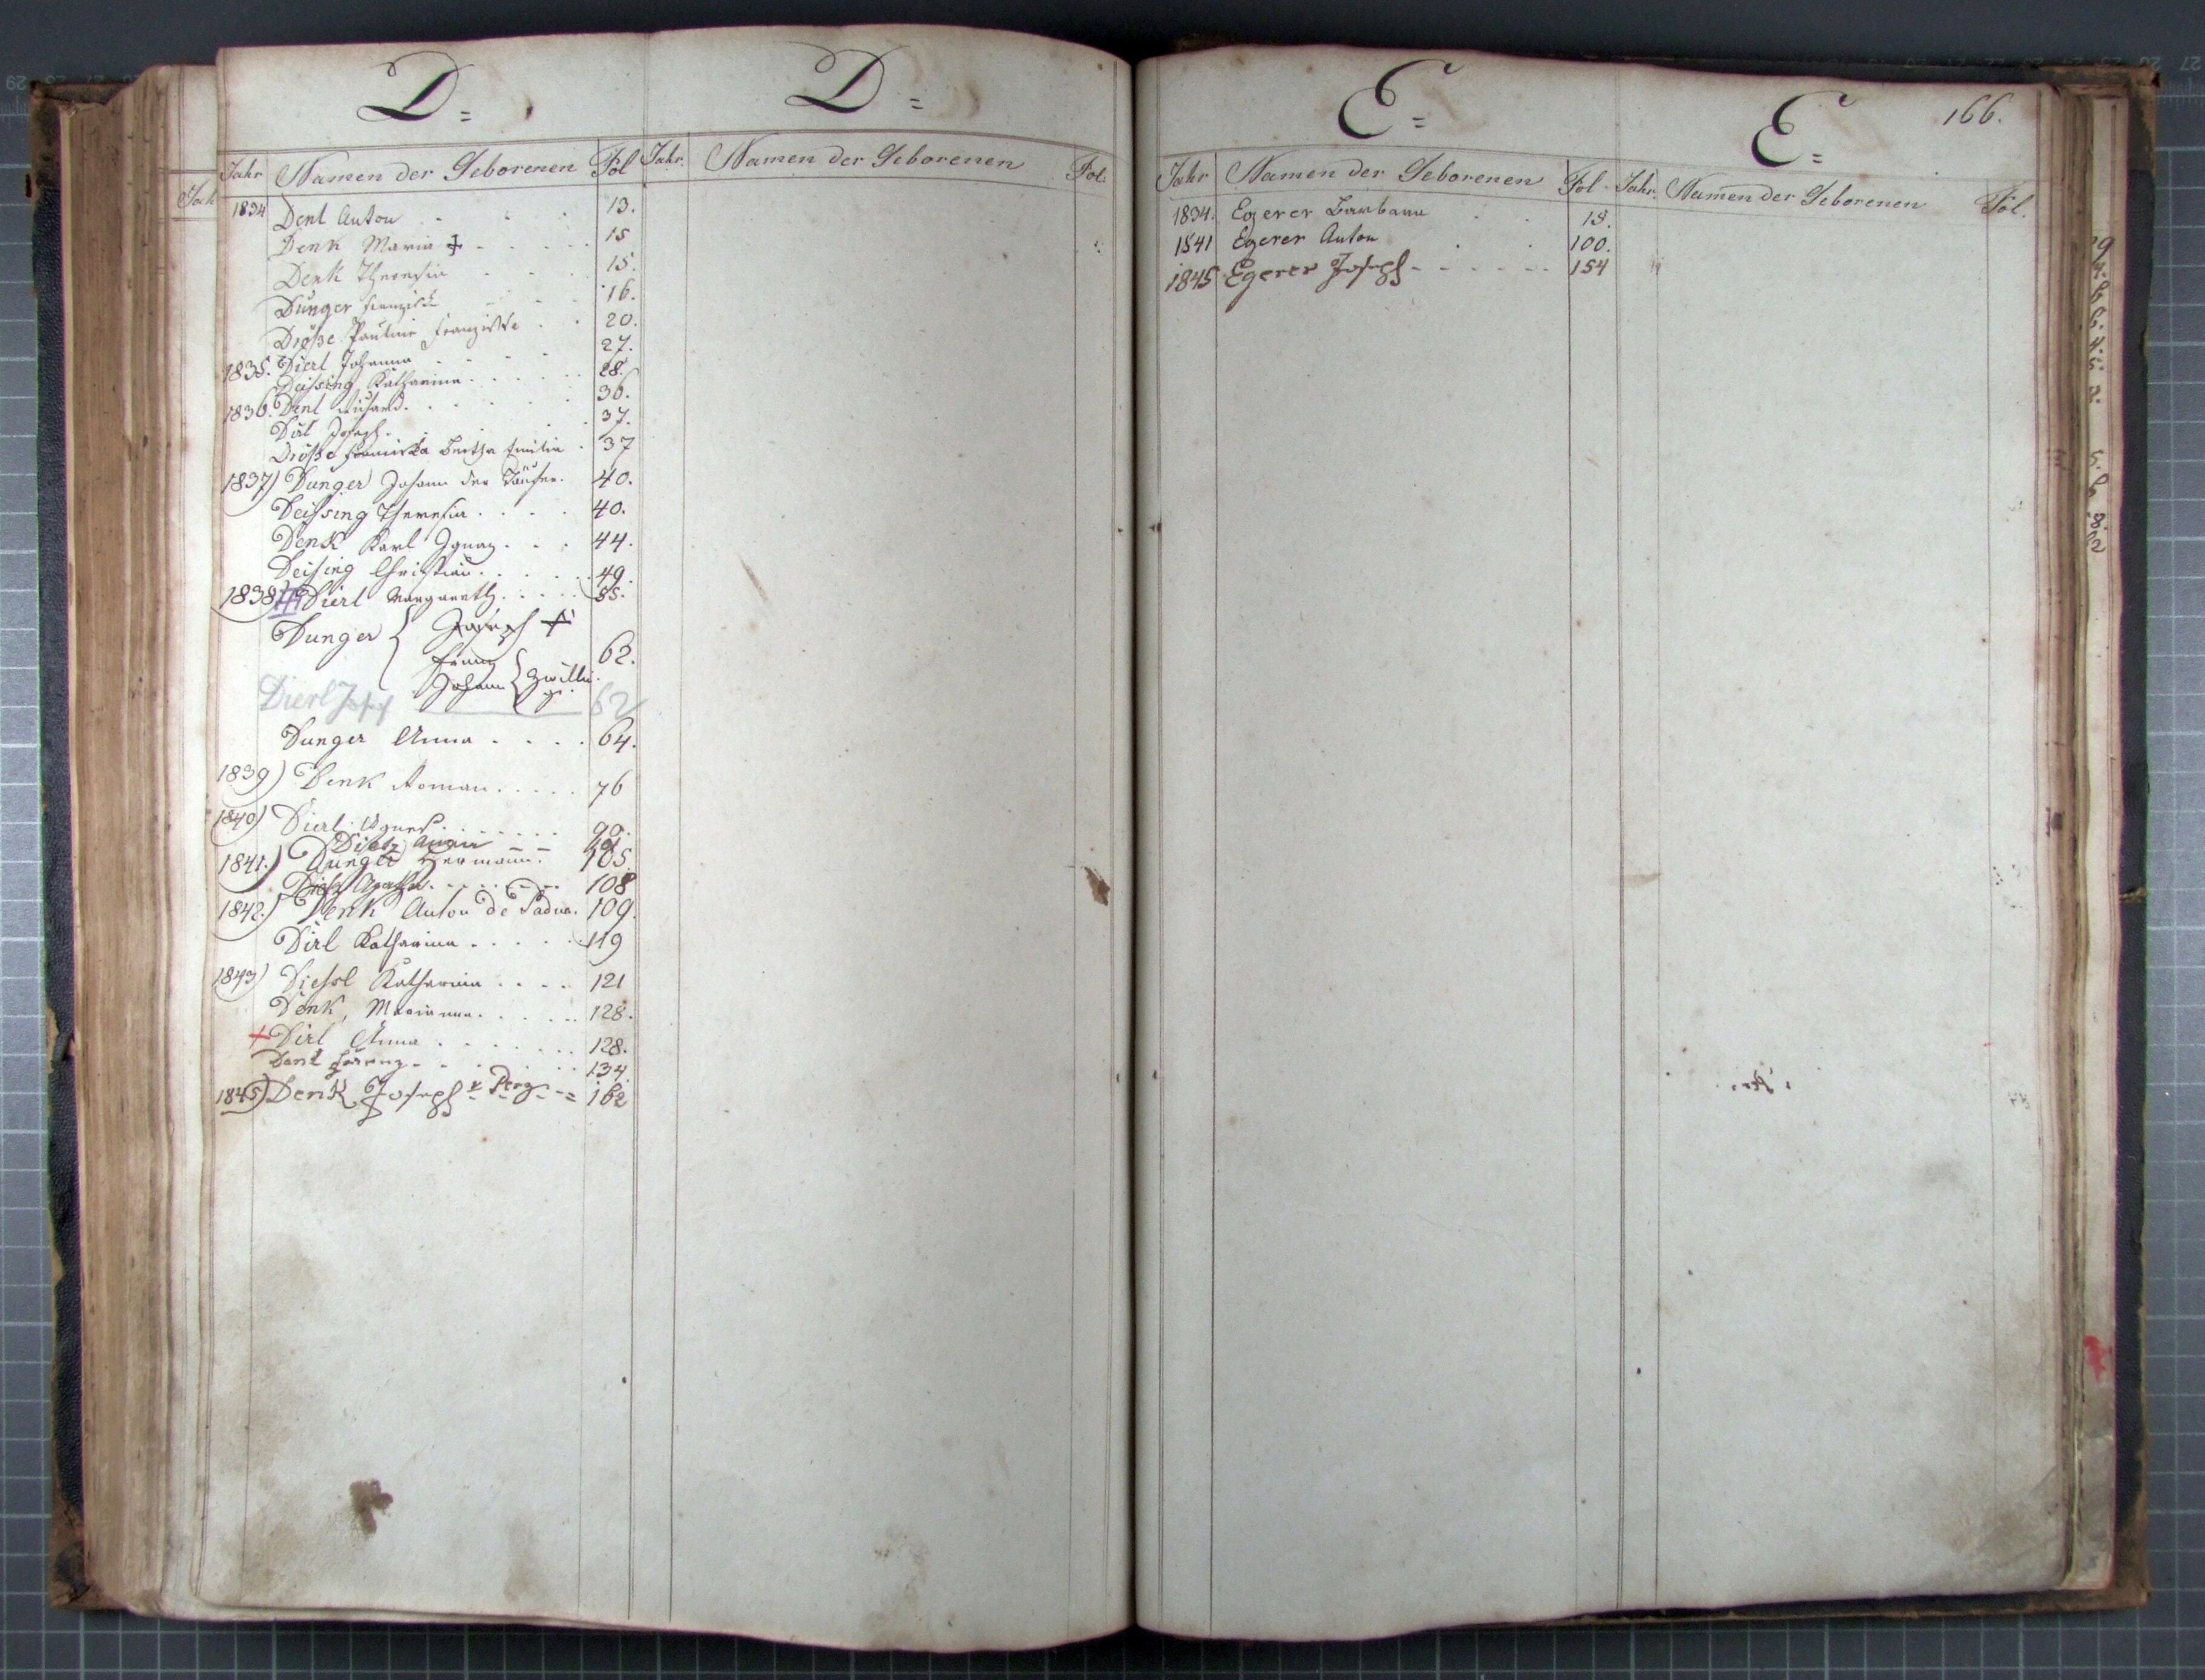 D=
Jahr Namen der Geborenen Fol
1834 Denk Anton 13.
Denk Maria 15
Denk Theresia 15.
Dunger Franziska 16.
Droßе Pauline Franziska 20.
1835. Dierl Johanna 27.
Deissing Katharina 28.
1836. Denk 36.
Dirl Joseph 37.
Droße Franziska Bertha Emilia 37
1837) Dunger Johann der Täufer. 40.
Deissing Theresia 40.
Denk Karl Ignaz 44.
Deissing Christian 49.
1838) Dierl Margareth 55.
Dunger { Joseph
Franz 62.
Johann } Zwillin
ge.
Dierl Josef 62
Dunger Anna 64.
1839) Denk Roman 76
1840) Dierl Agnes 90.
Dietz Anna
1841.) Dunger Hermann. 105.
Dietz Agatha 108
1842.) Denk Anton de Padua. 109.
Dirl Katharina 119
1843) Diessl Katharina 121
Denk, Marianna 128.
Dirl Anna 128.
Denk Franz 134
1845) Denk Joseph v. Perg 162
D=
Jahr. Namen der Geborenen Fol.
E=
Jahr Namen der Geborenen Fol.
1834. Egerer Barbara 18.
1841 Egerer Anton 100.
1845 Egerer Joseph 154
E=
166.
Jahr. Namen der Geborenen Fol.